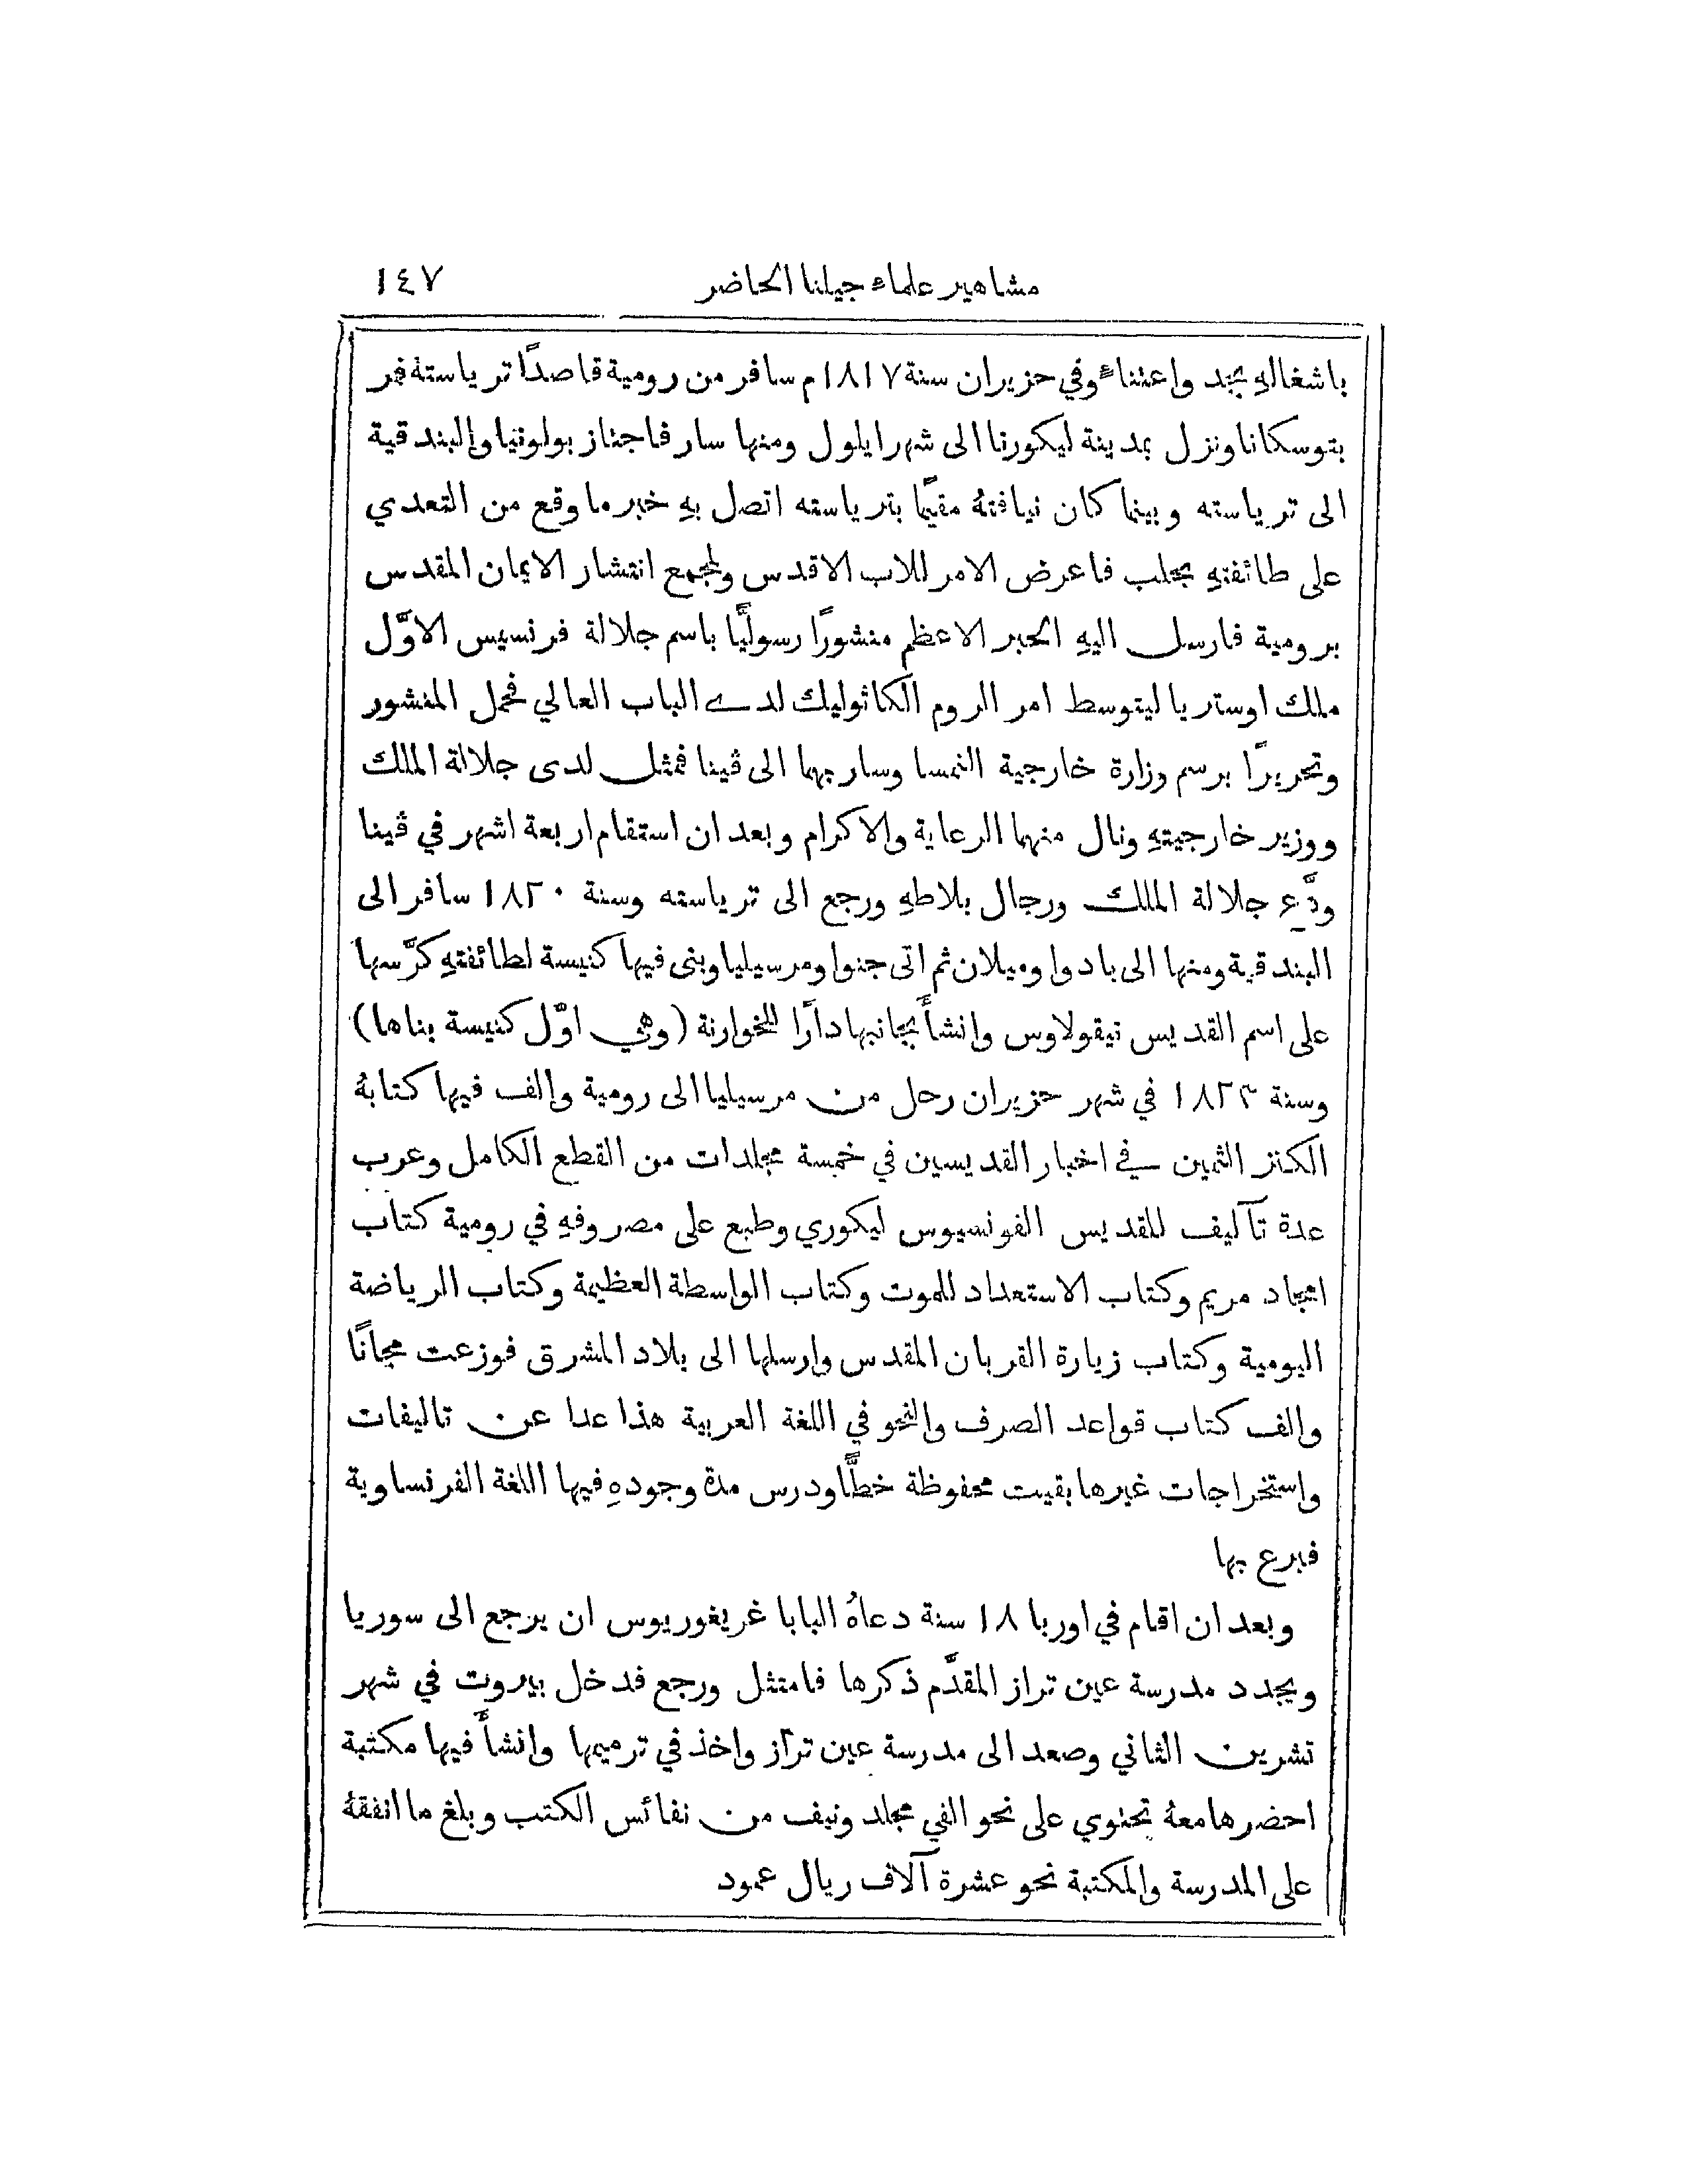 مشاهير علماء جيلنا الحاضر ١٤٧
باشغالهِ بجد واعتناءٍ وفي حزيران سنة ١٨١٧م سافر من رومية قاصدًا ترياسته فمر
بتوسكانا ونزل بمدينة ليكورنا الى شهر ايلول ومنها سار فاجتاز بولونيا والبندقية
الى ترياسته وبينما كان نيافتهُ مقيمًا بترياسته اتصل بهِ خبر ما وقع من التعدي
على طائفتهِ بحلب فاعرض الامر للاب الاقدس ولمجمع انتشار الايمان المقدس
برومية فارسل اليهِ الحبر الاعظم منشورًا رسوليًّا باسم جلالة فرنسيس الاوَّل
ملك اوستريا ليتوسط امر الروم الكاثوليك لدى الباب العالي فحمل المنشور
وتحريرًا برسم وزارة خارجية النمسا وسار بهما الى ڤينا فمثل لدى جلالة الملك
ووزير خارجيتهِ ونال منهما الرعاية والاكرام وبعد ان استقام اربعة اشهر في ڤينا
ودَّع جلالة الملك ورجال بلاطهِ ورجع الى ترياسته وسنة ١٨٢٠ سافر الى
البندقية ومنها الى بادوا وميلان ثم اتى جنوا ومرسيليا وبنى فيها كنيسة لطائفتهِ كرَّسها
على اسم القديس نيقولاوس وانشأَ بجانبها دارًا للخوارنة (وهي اوَّل كنيسة بناها)
وسنة ١٨٢٣ في شهر حزيران رحل من مرسيليا الى رومية والف فيها كتابهُ
الكنز الثمين في اخبار القديسين في خمسة مجلدات من القطع الكامل وعرب
عدة تآليف للقديس الفونسيوس ليكوري وطبع على مصروفهِ في رومية كتاب
امجاد مريم وكتاب الاستعداد للموت وكتاب الواسطة العظيمة وكتاب الرياضة
اليومية وكتاب زيارة القربان المقدس وارسلها الى بلاد المشرق فوزعت مجانًا
والف كتاب قواعد الصرف والنحو في اللغة العربية هذا عدا عن تاليفات
واستخراجات غيرها بقيت محفوظة خطًّا ودرس مدة وجودهِ فيها اللغة الفرنساوية
فبرع بها
وبعد ان اقام في اوربا ١٨ سنة دعاهُ البابا غريغوريوس ان يرجع الى سوريا
ويجدد مدرسة عين تراز المقدَّم ذكرها فامتثل ورجع فدخل بيروت في شهر
تشرين الثاني وصعد الى مدرسة عين تراز واخذ في ترميمها وانشأَ فيها مكتبة
احضرها معهُ تحتوي على نحو الفي مجلد ونيف من نفائس الكتب وبلغ ما انفقهُ
على المدرسة والمكتبة نحو عشرة آلاف ريال عمود